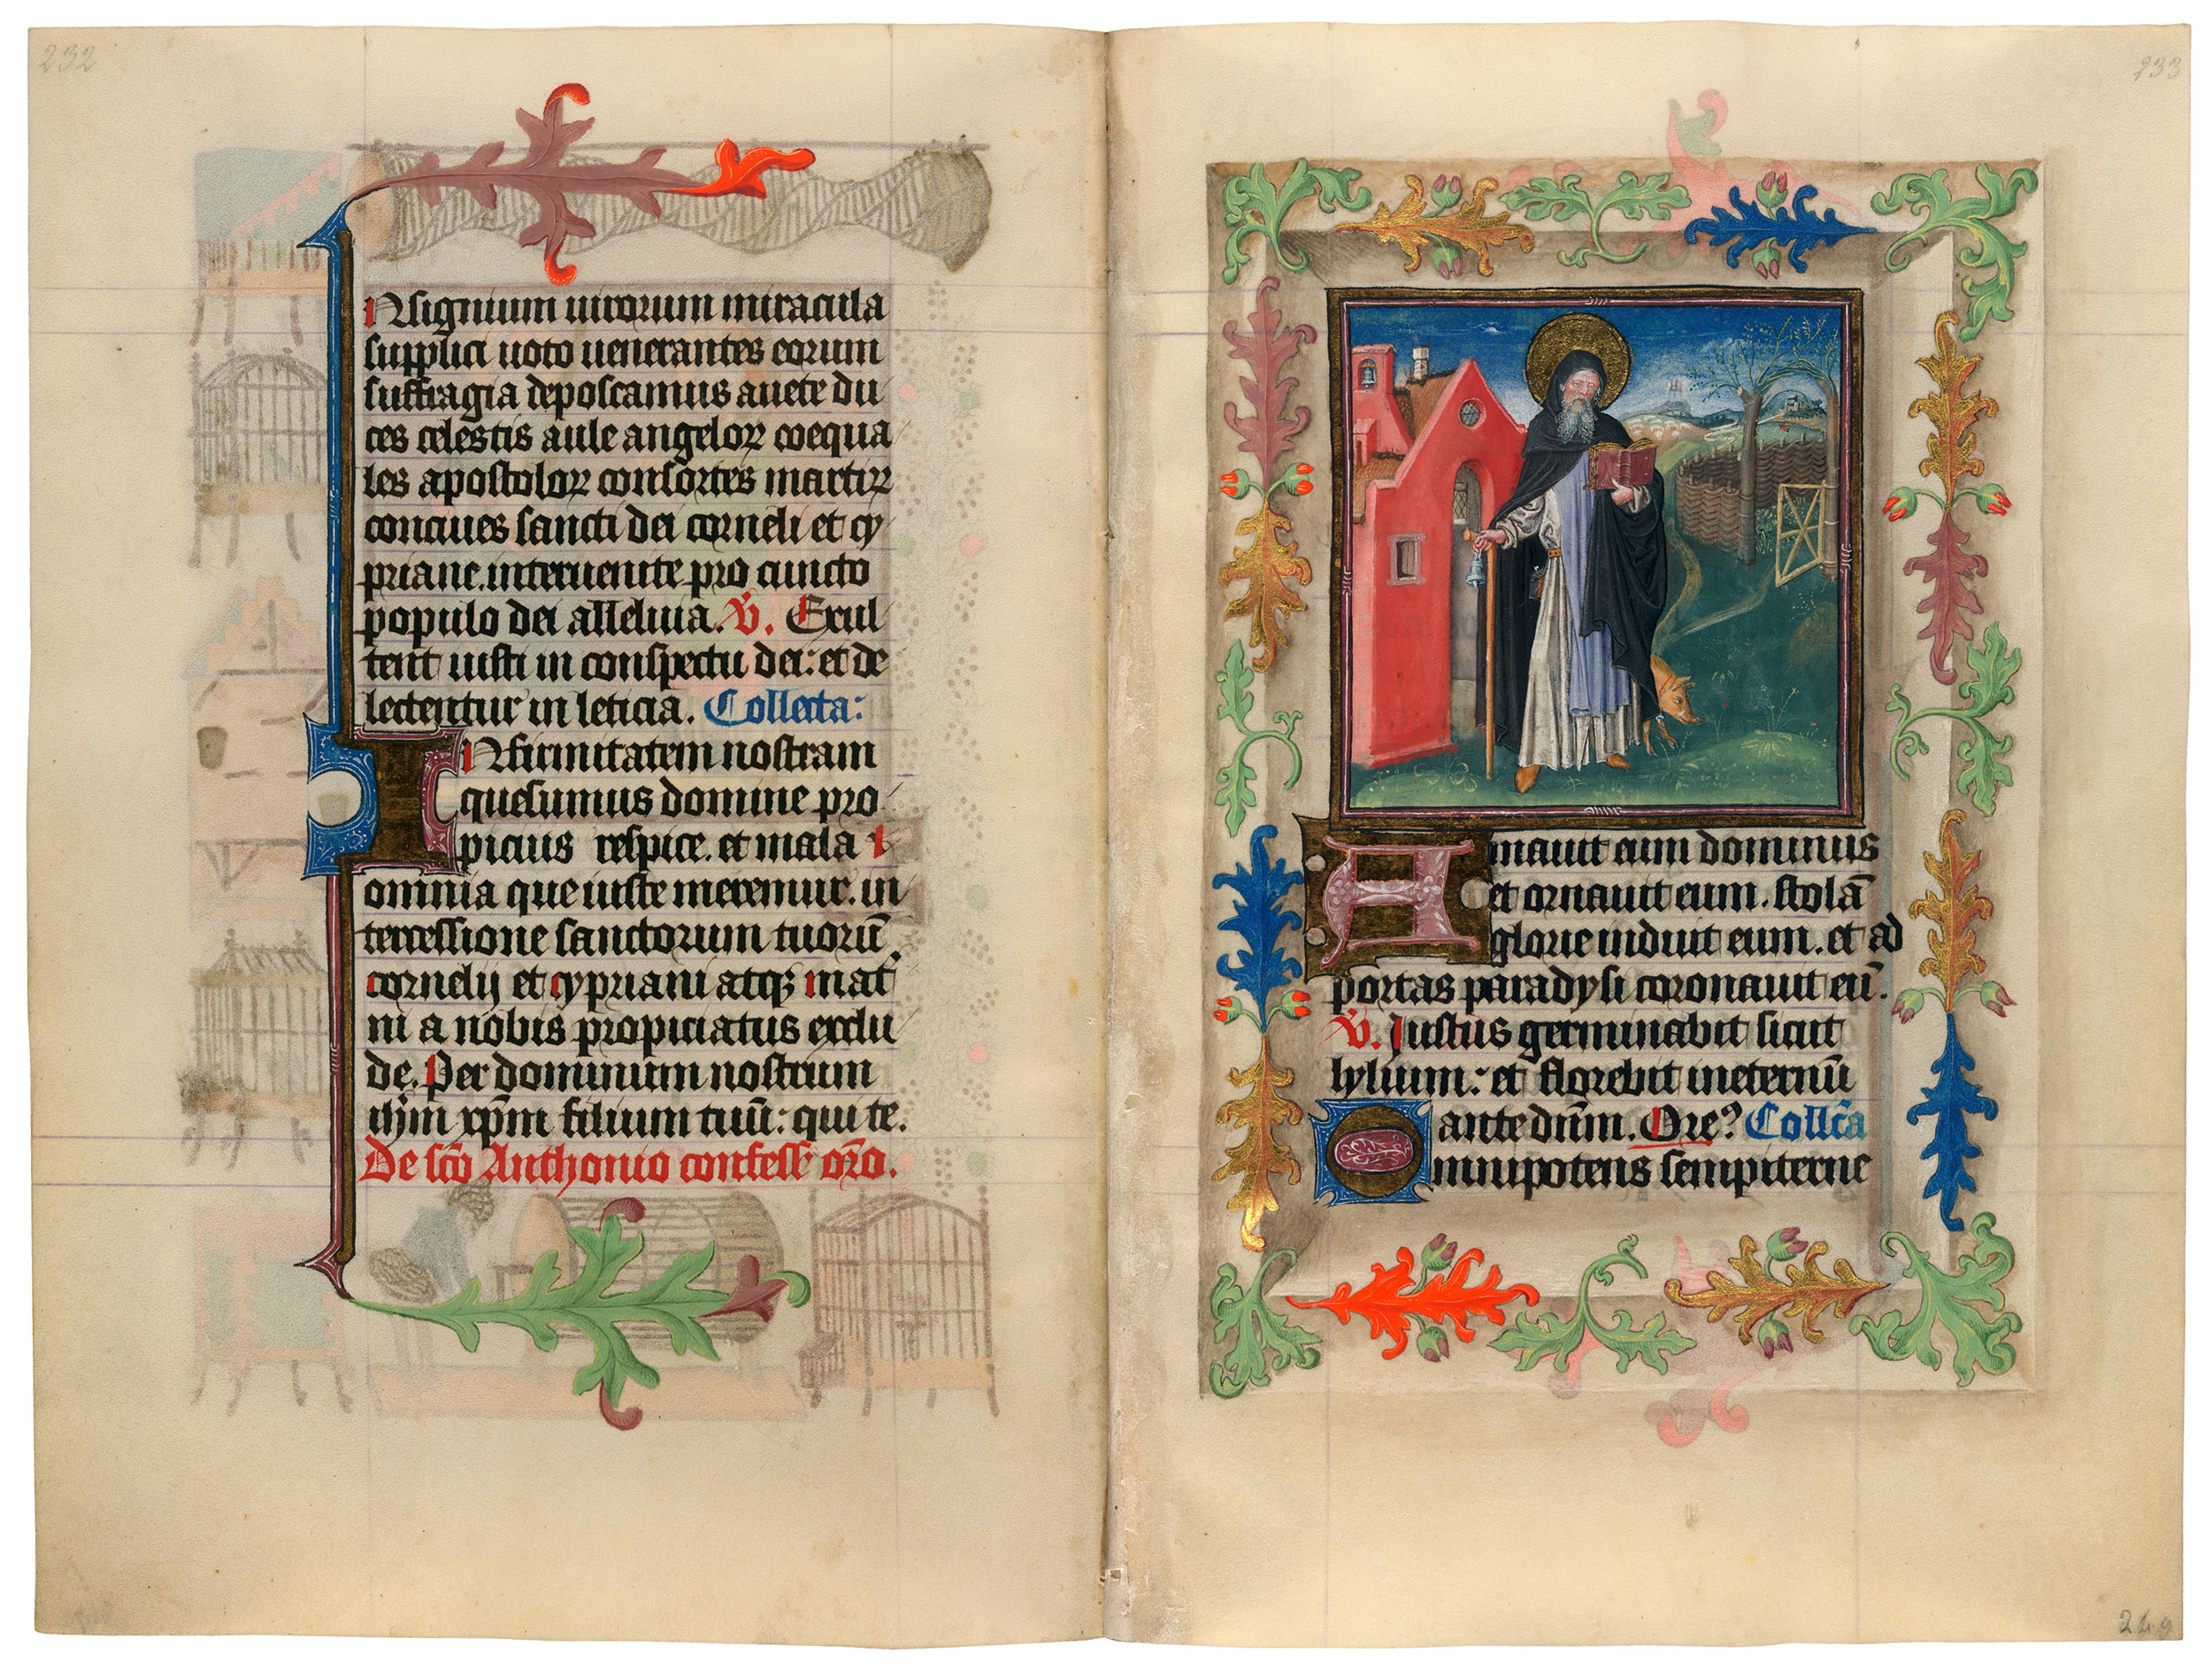 232
Nsignium uirorum miracula
supplici uoto uenerantes eorum
suffragia deposcamus auete du
ces celestis aule angeloꝝ coequa
les apostoloꝝ consortes martiꝝ
conciues sancti dei corneli et cy
priane. interuenite pro cuncto
populo dei alleluia. V̇. Exul
tent iusti in conspectu dei: et de
lectentur in leticia. Collecta:
INfirmitatem nostram
quesumus domine pro
picius respice. et mala
omnia que iuste meremur. in
tercessione sanctorum tuorū
cornelij et cypriani atqꝫ mat
ni a nobis propiciatus exclu
de. Per dominum nostrum
ihm̄ xp̄m filium tuū: qui te.
De sc̄o Anthonio confess̄ or̄o.
233
Amauit eum dominus
et ornauit eum. stolā
glorie induit eum. et ad
portas paradysi coronauit eū.
V̇. Iustus germinabit sicut
lylium: et florebit ineternū
ante dn̄m. Ore? Coll̄ca
Omnipotens sempiterne
249